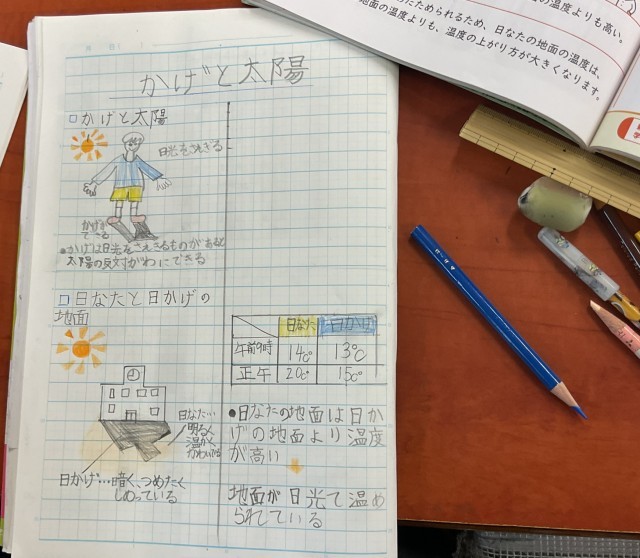 かげと太陽
□かげと太陽
日光をさえぎる
かげが
できる
●かげは日光をさえぎるものがあると
太陽の反対がわにできる
□日なたと日かげの
地面
日なた…
明るく
温かく
かわいてる
日かげ…暗く、つめたく
しめっている
日なた 日かげ
午前9時 14℃ 13℃
正午 20℃ 15℃
●日なたの地面は日か
げの地面より温度
が高い
地面が日光で温め
られている
の温度よりも高い。
あたためられるため、日なたの地面の温度は、
地面の温度よりも、温度の上がり方が大きくなります。